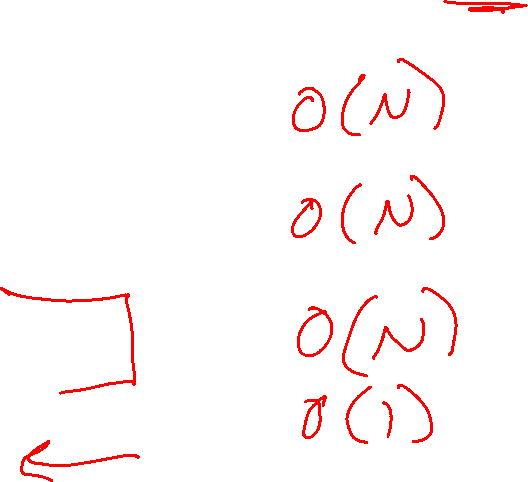 O(N)
O(N)
O(N)
O(1)